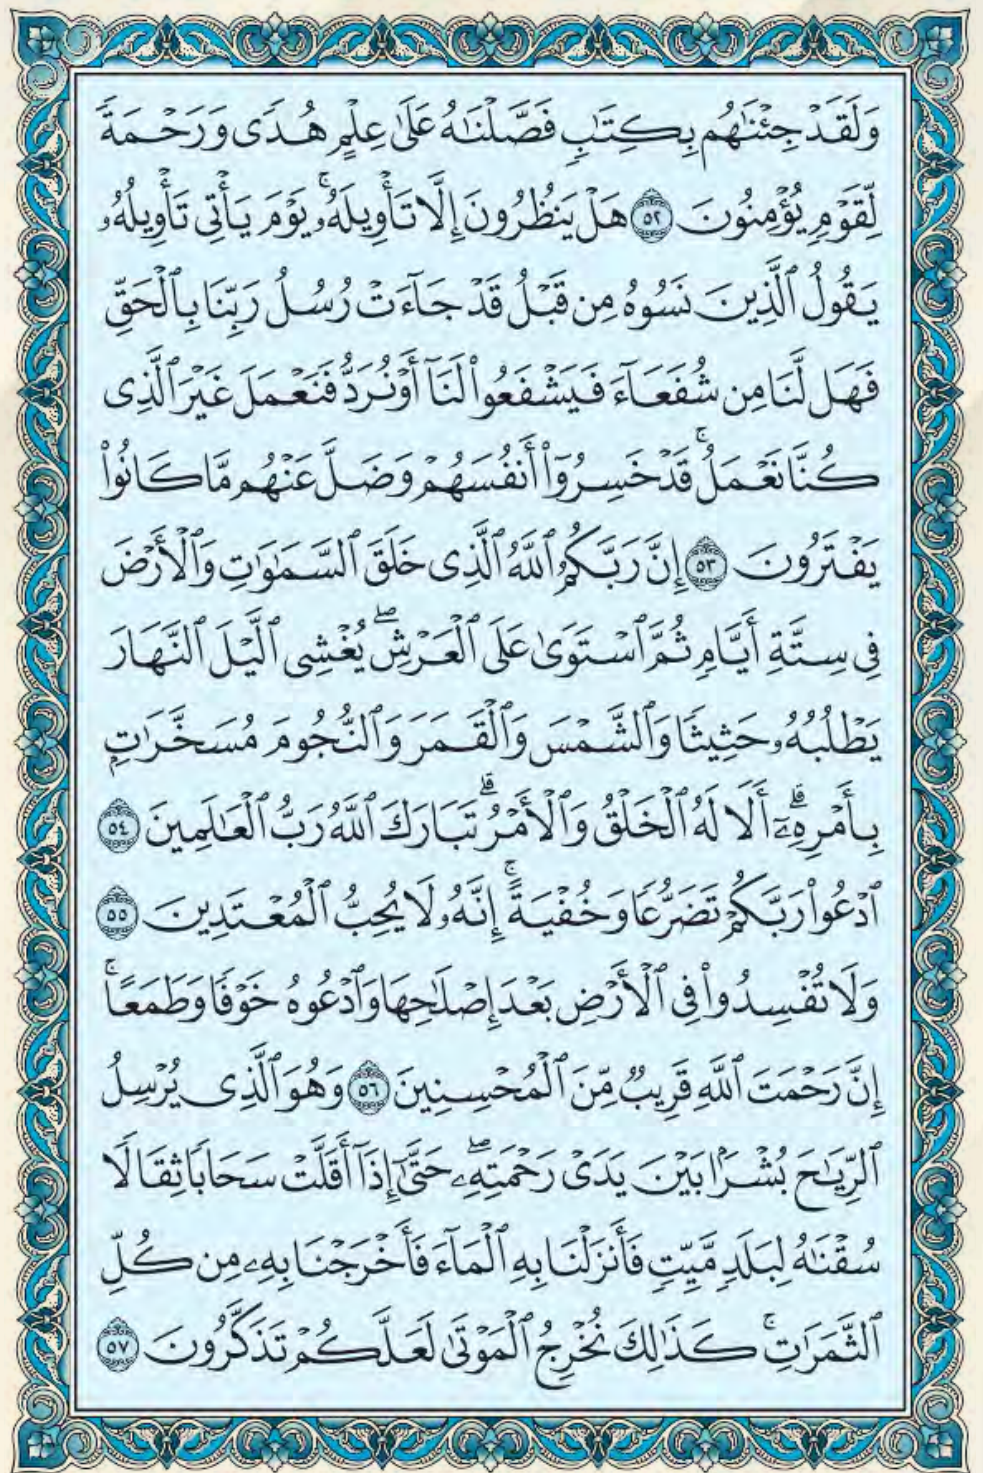 وَلَقَدْ جِئْنَٰهُم بِكِتَٰبٍ فَصَّلْنَٰهُ عَلَىٰ عِلْمٍ هُدًى وَرَحْمَةً
لِّقَوْمٍ يُؤْمِنُونَ ٥٢ هَلْ يَنظُرُونَ إِلَّا تَأْوِيلَهُۥۚ يَوْمَ يَأْتِى تَأْوِيلُهُۥ
يَقُولُ ٱلَّذِينَ نَسُوهُ مِن قَبْلُ قَدْ جَآءَتْ رُسُلُ رَبِّنَا بِٱلْحَقِّ
فَهَل لَّنَا مِن شُفَعَآءَ فَيَشْفَعُوا۟ لَنَآ أَوْ نُرَدُّ فَنَعْمَلَ غَيْرَ ٱلَّذِى
كُنَّا نَعْمَلُۚ قَدْ خَسِرُوٓا۟ أَنفُسَهُمْ وَضَلَّ عَنْهُم مَّا كَانُوا۟
يَفْتَرُونَ ٥٣ إِنَّ رَبَّكُمُ ٱللَّهُ ٱلَّذِى خَلَقَ ٱلسَّمَٰوَٰتِ وَٱلْأَرْضَ
فِى سِتَّةِ أَيَّامٍ ثُمَّ ٱسْتَوَىٰ عَلَى ٱلْعَرْشِۖ يُغْشِى ٱلَّيْلَ ٱلنَّهَارَ
يَطْلُبُهُۥ حَثِيثًا وَٱلشَّمْسَ وَٱلْقَمَرَ وَٱلنُّجُومَ مُسَخَّرَٰتٍۭ
بِأَمْرِهِۦٓۗ أَلَا لَهُ ٱلْخَلْقُ وَٱلْأَمْرُۗ تَبَارَكَ ٱللَّهُ رَبُّ ٱلْعَٰلَمِينَ ٥٤
ٱدْعُوا۟ رَبَّكُمْ تَضَرُّعًا وَخُفْيَةًۚ إِنَّهُۥ لَا يُحِبُّ ٱلْمُعْتَدِينَ ٥٥
وَلَا تُفْسِدُوا۟ فِى ٱلْأَرْضِ بَعْدَ إِصْلَٰحِهَا وَٱدْعُوهُ خَوْفًا وَطَمَعًاۚ
إِنَّ رَحْمَتَ ٱللَّهِ قَرِيبٌ مِّنَ ٱلْمُحْسِنِينَ ٥٦ وَهُوَ ٱلَّذِى يُرْسِلُ
ٱلرِّيَٰحَ بُشْرًۢا بَيْنَ يَدَىْ رَحْمَتِهِۦۖ حَتَّىٰٓ إِذَآ أَقَلَّتْ سَحَابًا ثِقَالًا
سُقْنَٰهُ لِبَلَدٍ مَّيِّتٍ فَأَنزَلْنَا بِهِ ٱلْمَآءَ فَأَخْرَجْنَا بِهِۦ مِن كُلِّ
ٱلثَّمَرَٰتِۚ كَذَٰلِكَ نُخْرِجُ ٱلْمَوْتَىٰ لَعَلَّكُمْ تَذَكَّرُونَ ٥٧